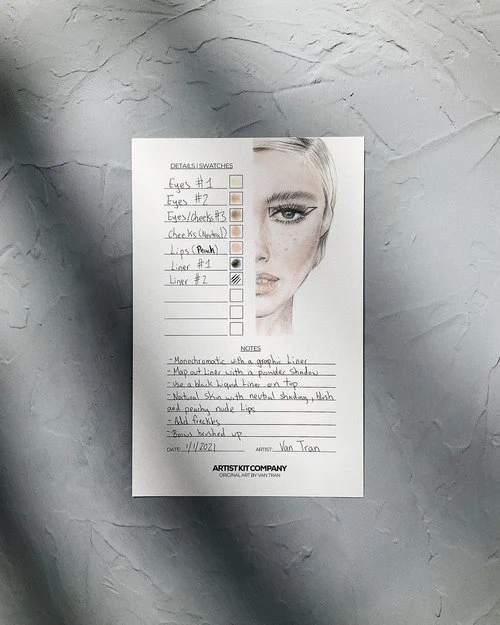 DETAILS | SWATCHES
Eyes #1
Eyes #2
Eyes/Cheeks #3
Cheeks (Neutral)
Lips (Peach)
Liner #1
Liner #2
NOTES
- Monochromatic with a graphic Liner
- Map out Liner with a powder Shadow
- Use a black Liquid Liner on top
- Natural Skin with neutral shading, blush
and peachy nude Lips
- Add freckles
- Brows brushed up
DATE: 1/1/2021 ARTIST: Van Tran
ARTIST KIT COMPANY
ORIGINAL ART BY VAN TRAN